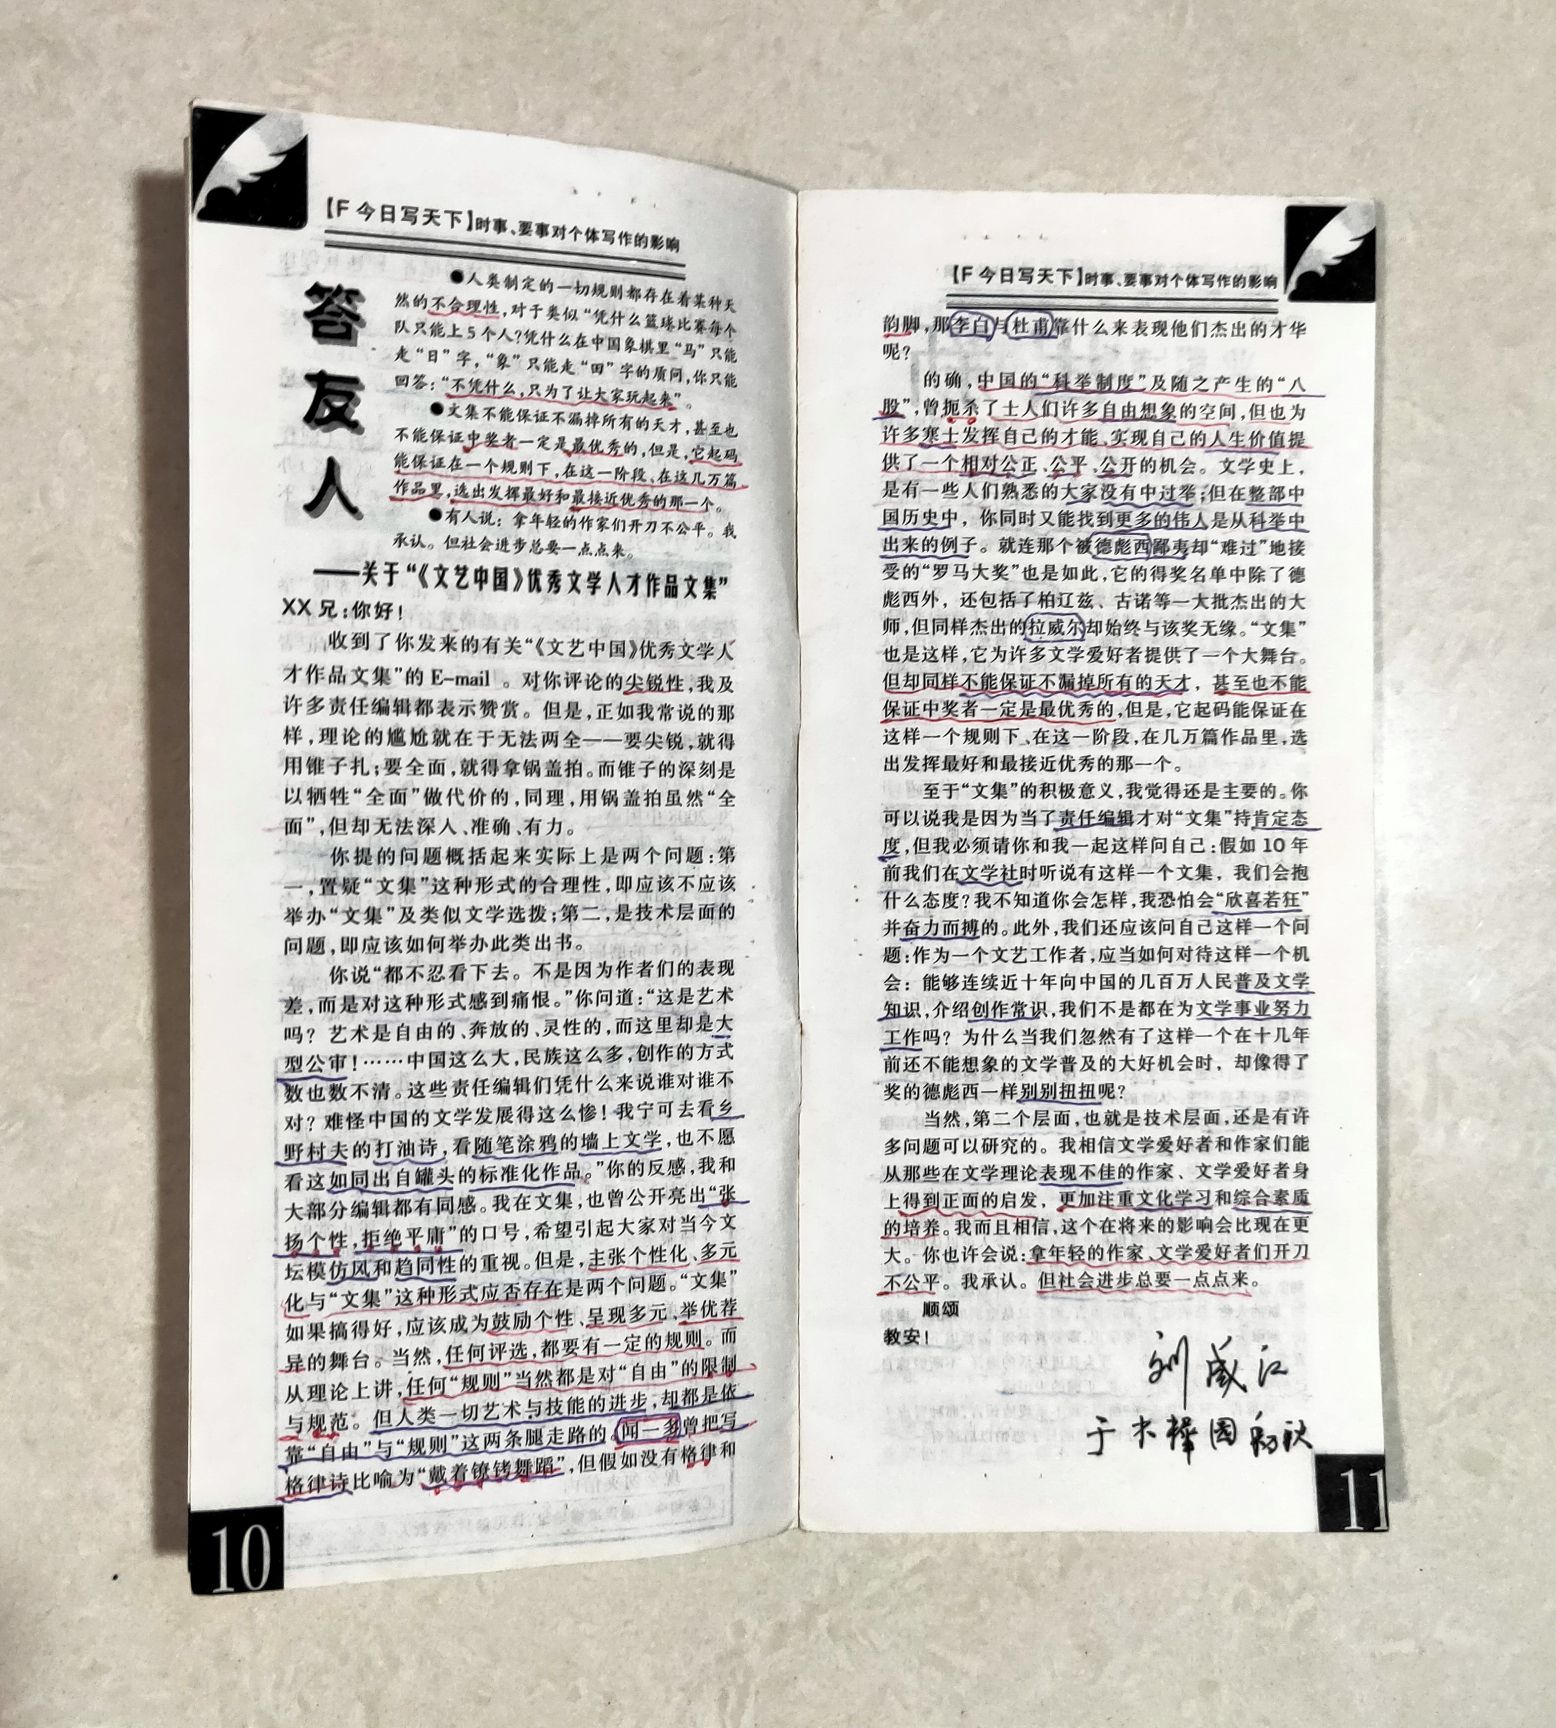 【F 今日写天下】时事、要事对个体写作的影响
答友人
●人类制定的一切规则都存在着某种天
然的不合理性，对于类似“凭什么篮球比赛每个
队只能上5个人？凭什么在中国象棋里“马”只能
走“日”字，“象”只能走“田”字的质问，你只能
回答：“不凭什么，只为了让大家玩起来”。
●文集不能保证不漏掉所有的天才，甚至也
不能保证中奖者一定是最优秀的，但是，它起码
能保证在一个规则下，在这一阶段、在这几万篇
作品里，选出发挥最好和最接近优秀的那一个。
●有人说：拿年轻的作家们开刀不公平。我
承认。但社会进步总要一点点来。
——关于“《文艺中国》优秀文学人才作品文集”
XX兄：你好！
收到了你发来的有关“《文艺中国》优秀文学人
才作品文集”的E-mail 。对你评论的尖锐性，我及
许多责任编辑都表示赞赏。但是，正如我常说的那
样，理论的尴尬就在于无法两全——要尖锐，就得
用锥子扎；要全面，就得拿锅盖拍。而锥子的深刻是
以牺牲“全面”做代价的，同理，用锅盖拍虽然“全
面”，但却无法深入、准确、有力。
你提的问题概括起来实际上是两个问题：第
一，置疑“文集”这种形式的合理性，即应该不应该
举办“文集”及类似文学选拨；第二，是技术层面的
问题，即应该如何举办此类出书。
你说“都不忍看下去。不是因为作者们的表现
差，而是对这种形式感到痛恨。”你问道：“这是艺术
吗？艺术是自由的、奔放的、灵性的，而这里却是大
型公审！……中国这么大，民族这么多，创作的方式
数也数不清。这些责任编辑们凭什么来说谁对谁不
对？难怪中国的文学发展得这么惨！我宁可去看乡
野村夫的打油诗，看随笔涂鸦的墙上文学，也不愿
看这如同出自罐头的标准化作品。”你的反感，我和
大部分编辑都有同感。我在文集，也曾公开亮出“张
扬个性，拒绝平庸”的口号，希望引起大家对当今文
坛模仿风和趋同性的重视。但是，主张个性化、多元
化与“文集”这种形式应否存在是两个问题。“文集”
如果搞得好，应该成为鼓励个性、呈现多元、举优荐
异的舞台。当然，任何评选，都要有一定的规则。而
从理论上讲，任何“规则”当然都是对“自由”的限制
与规范。但人类一切艺术与技能的进步，却都是依
靠“自由”与“规则”这两条腿走路的。闻一多曾把写
格律诗比喻为“戴着镣铐舞蹈”，但假如没有格律和
10
【F 今日写天下】时事、要事对个体写作的影响
韵脚，那李白与杜甫靠什么来表现他们杰出的才华
呢？
的确，中国的“科举制度”及随之产生的“八
股”，曾扼杀了士人们许多自由想象的空间，但也为
许多寒士发挥自己的才能、实现自己的人生价值提
供了一个相对公正、公平、公开的机会。文学史上，
是有一些人们熟悉的大家没有中过举；但在整部中
国历史中，你同时又能找到更多的伟人是从科举中
出来的例子。就连那个被德彪西鄙夷却“难过”地接
受的“罗马大奖”也是如此，它的得奖名单中除了德
彪西外，还包括了柏辽兹、古诺等一大批杰出的大
师，但同样杰出的拉威尔却始终与该奖无缘。“文集”
也是这样，它为许多文学爱好者提供了一个大舞台。
但却同样不能保证不漏掉所有的天才，甚至也不能
保证中奖者一定是最优秀的，但是，它起码能保证在
这样一个规则下、在这一阶段，在几万篇作品里，选
出发挥最好和最接近优秀的那一个。
至于“文集”的积极意义，我觉得还是主要的。你
可以说我是因为当了责任编辑才对“文集”持肯定态
度，但我必须请你和我一起这样问自己：假如10年
前我们在文学社时听说有这样一个文集，我们会抱
什么态度？我不知道你会怎样，我恐怕会“欣喜若狂”
并奋力而搏的。此外，我们还应该问自己这样一个问
题：作为一个文艺工作者，应当如何对待这样一个机
会：能够连续近十年向中国的几百万人民普及文学
知识，介绍创作常识，我们不是都在为文学事业努力
工作吗？为什么当我们忽然有了这样一个在十几年
前还不能想象的文学普及的大好机会时，却像得了
奖的德彪西一样别别扭扭呢？
当然，第二个层面，也就是技术层面，还是有许
多问题可以研究的。我相信文学爱好者和作家们能
从那些在文学理论表现不佳的作家、文学爱好者身
上得到正面的启发，更加注重文化学习和综合素质
的培养。我而且相信，这个在将来的影响会比现在更
大。你也许会说：拿年轻的作家、文学爱好者们开刀
不公平。我承认。但社会进步总要一点点来。
顺颂
教安！
刘威江
于木樨园初秋
11